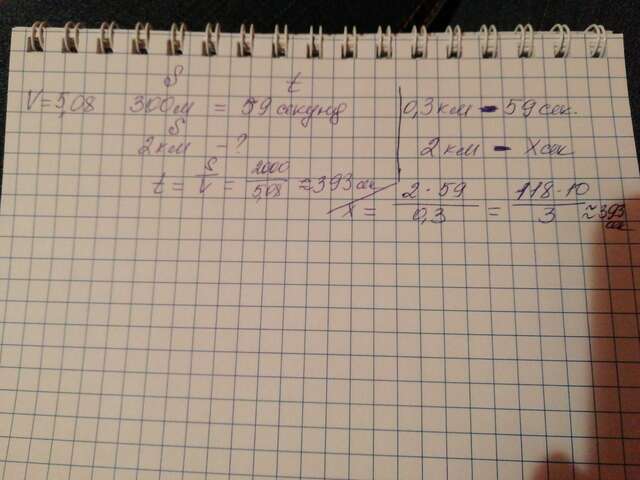 S t
V=5,08 300м = 59 секунд
S
2км - ?
t = S/V = 2000/5,08 ≈ 393 сек
0,3 км - 59 сек.
2 км - x сек
x = 2·59/0,3 = 118·10/3 ≈ 393 сек